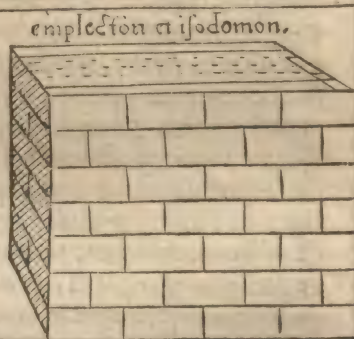 emplecton et iſodomon.